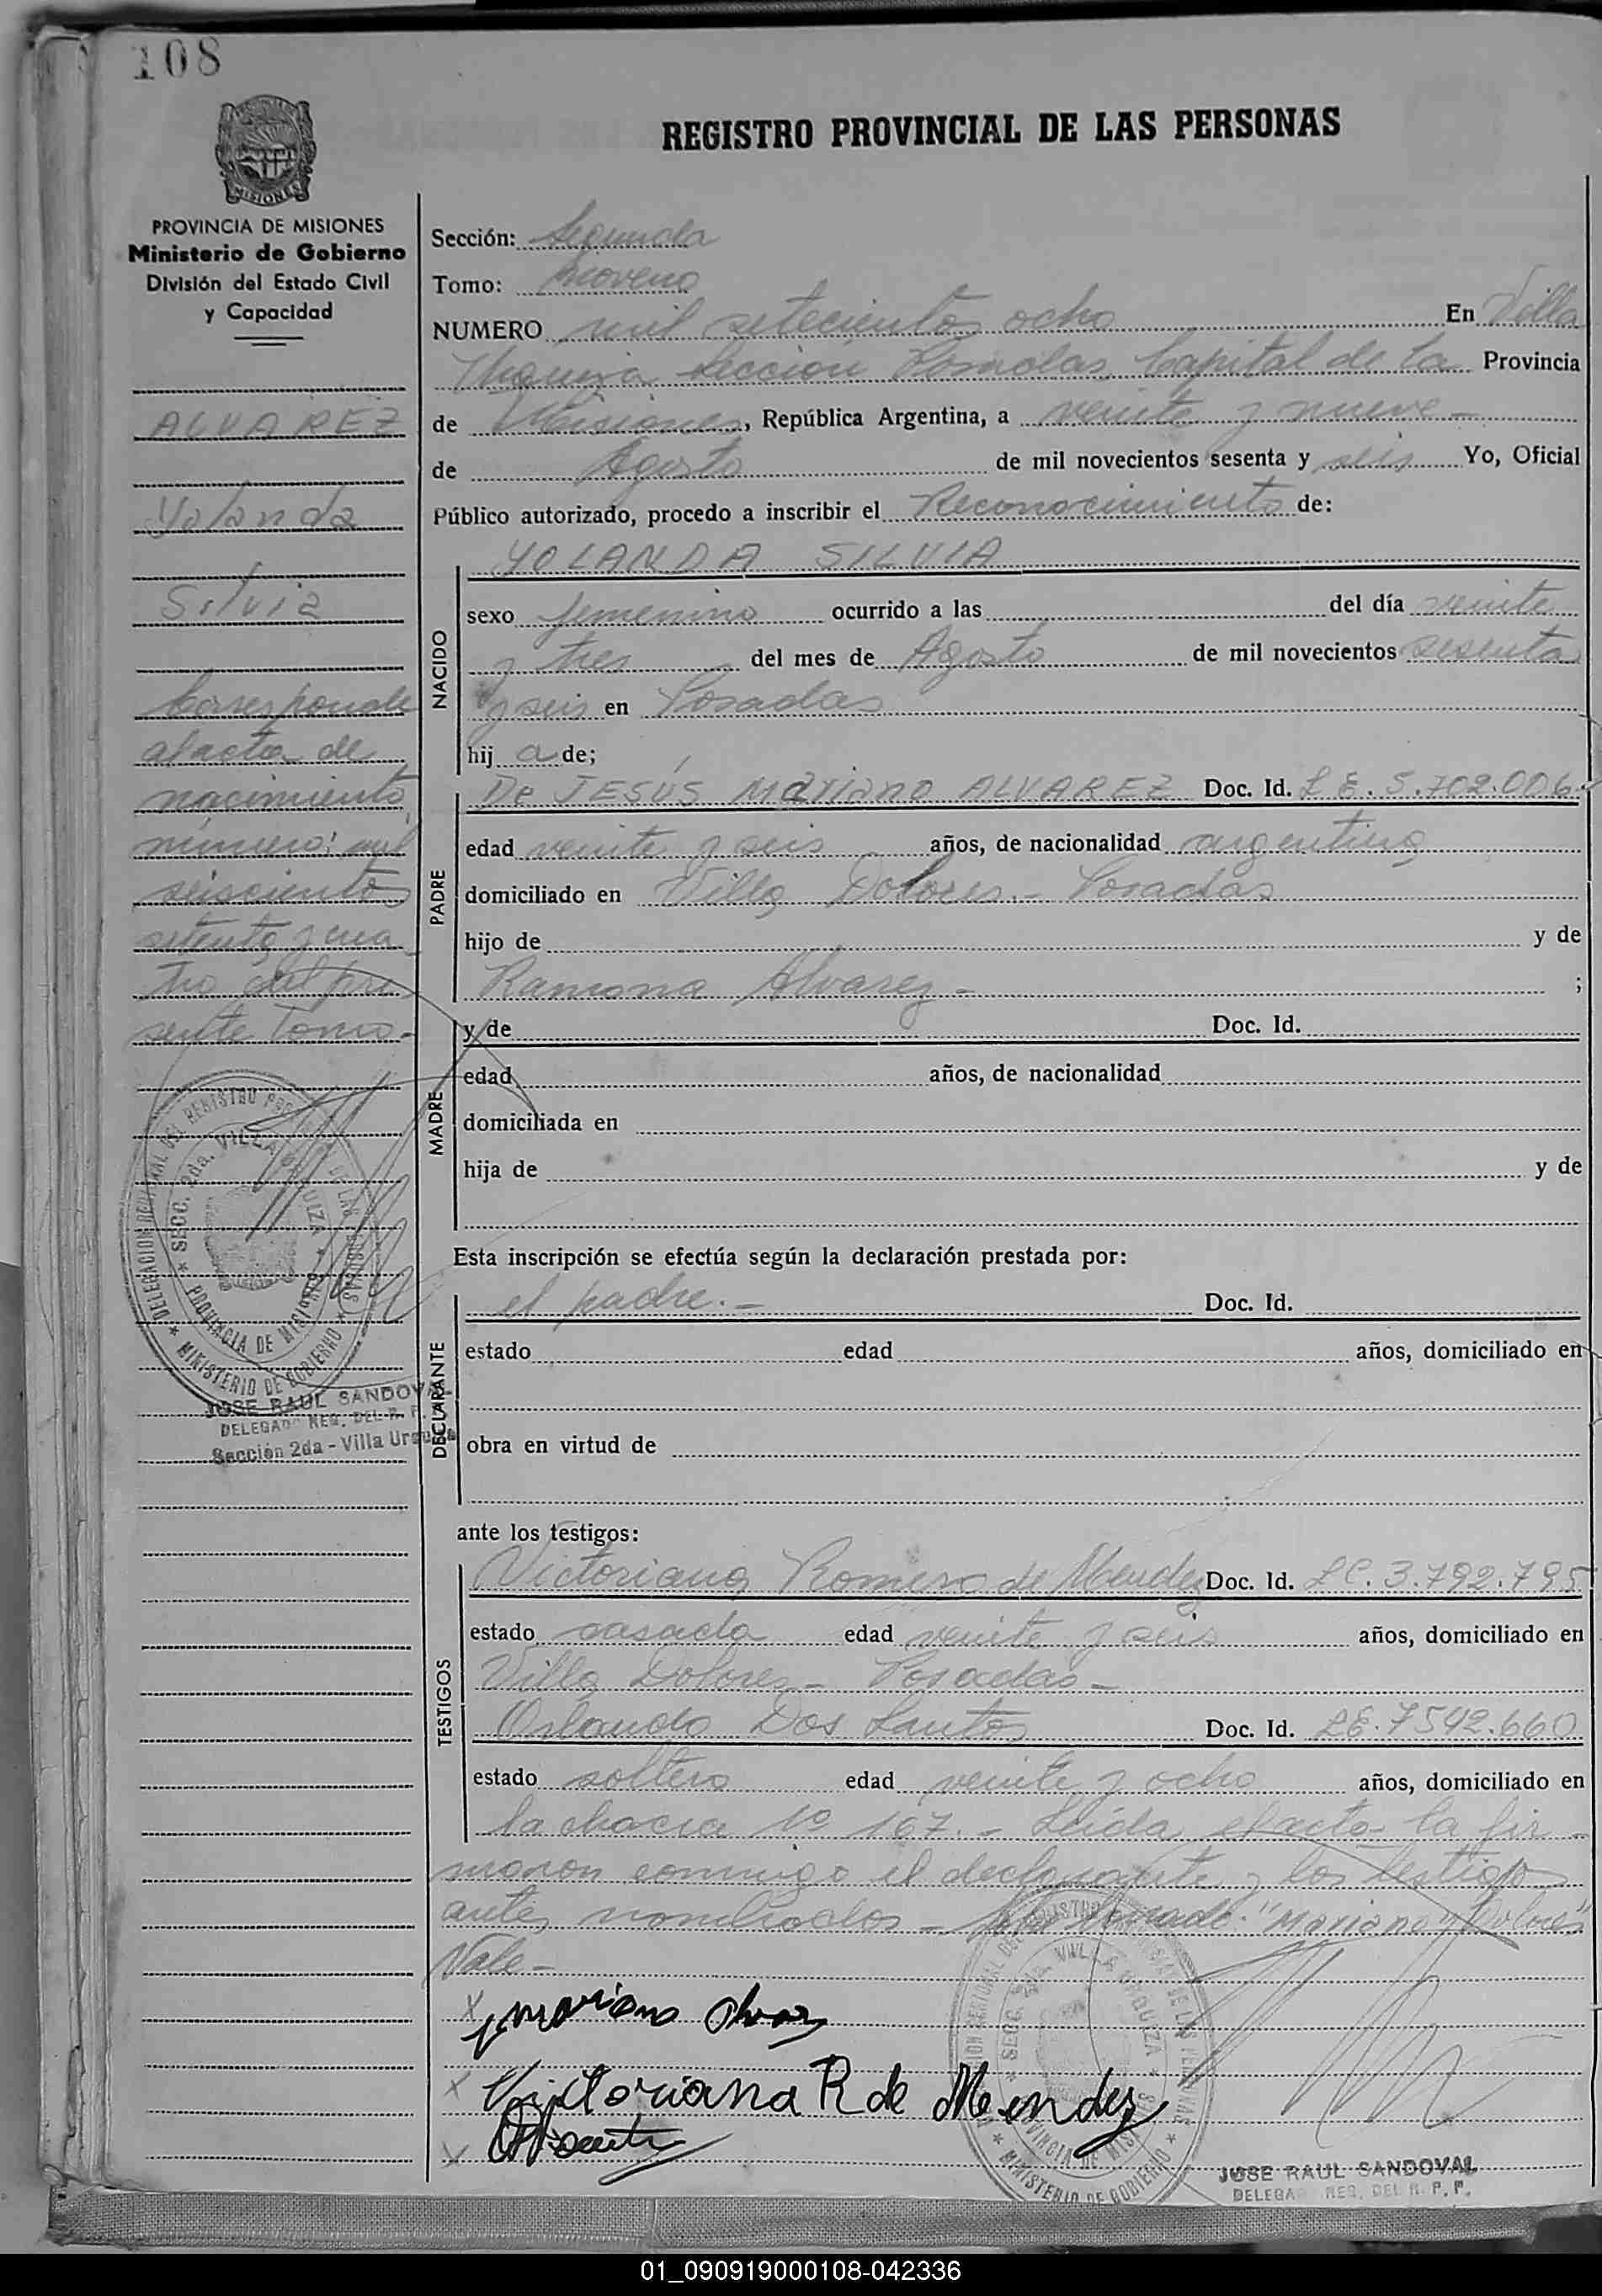 108
REGISTRO PROVINCIAL DE LAS PERSONAS
MISIONES
PROVINCIA DE MISIONES
Ministerio de Gobierno
División del Estado Civil
y Capacidad
ALVAREZ
Yolanda
Silvia
Corresponde
al acta de
nacimiento
número: mil
seiscientos
setenta y cua
tro del pre
sente Tomo.-
DELEGACION REGIONAL DEL REGISTRO PROVINCIAL DE LAS PERSONAS
SECC. 2da. VILLA URQUIZA
PROVINCIA DE MISIONES
MINISTERIO DE GOBIERNO
JOSE RAUL SANDOVAL
DELEGADO REG. DEL R. P.
Sección 2da - Villa Urquiza
Sección: Segunda
Tomo: Noveno
NUMERO mil setecientos ocho En Villa
Urquiza Sección Posadas, Capital de la Provincia
de Misiones, República Argentina, a veinte y nueve -
de Agosto de mil novecientos sesenta y seis Yo, Oficial
Público autorizado, procedo a inscribir el Reconocimiento de:
NACIDO
YOLANDA SILVIA
sexo femenino ocurrido a las del día veinte
y tres del mes de Agosto de mil novecientos sesenta
y seis en Posadas
hij a de;
PADRE
De JESÚS Mariano ALVAREZ Doc. Id. L E. 5.702.006.
edad veinte y seis años, de nacionalidad argentina
domiciliado en Villa Dolores.- Posadas
hijo de y de
Ramona Alvarez - ;
MADRE
y de Doc. Id.
edad años, de nacionalidad
domiciliada en
hija de y de
Esta inscripción se efectúa según la declaración prestada por:
DECLARANTE
el padre.- Doc. Id.
estado edad años, domiciliado en
obra en virtud de
ante los testigos:
TESTIGOS
Victoriana Romero de Mendez Doc. Id. LC. 3.792.795
estado casada edad veinte y seis años, domiciliado en
Villa Dolores - Posadas -
Orlando Dos Santos Doc. Id. LE. 7542.660
estado soltero edad veinte y ocho años, domiciliado en
la chacra Nº 167.- Leída el acta la fir
maron conmigo el declarante y los testigos
antes nombrados - "Mariano y Dolores"
Vale -
x Mariano Alvarez
x Victoriana R de Mendez
x
DELEGACION REGIONAL DEL REGISTRO PROVINCIAL DE LAS PERSONAS
SECC. 2da. VILLA URQUIZA
PROVINCIA DE MISIONES
MINISTERIO DE GOBIERNO
JOSE RAUL SANDOVAL
DELEGADO REG. DEL R. P. P.
01_090919000108-042336